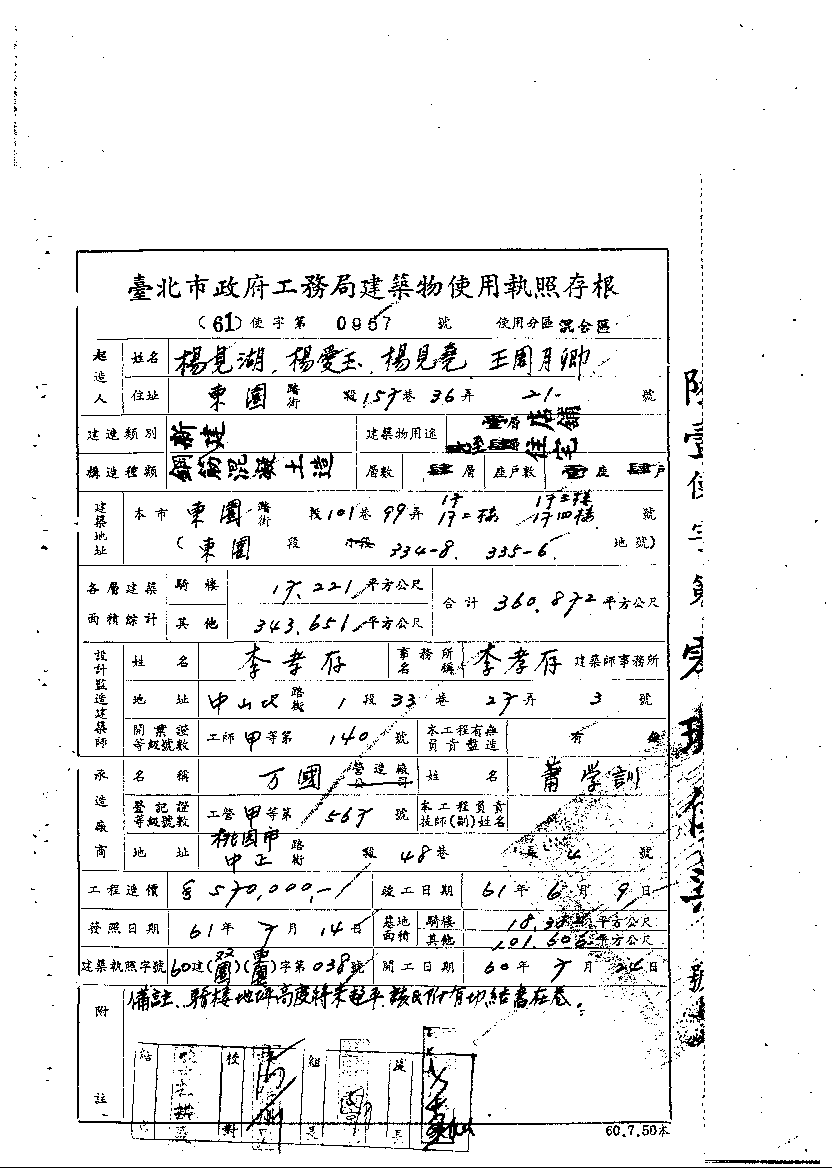 臺北市政府工務局建築物使用執照存根
(61) 使字第 0957 號 使用分區 混合區
起造人 姓名 楊見湖、楊愛玉、楊見堯 王周月卿
住址 東園 路街 段 157巷 36弄 21 號
建造類別 新建 建築物用途 店舖 住宅
構造種類 鋼筋混凝土造 層數 肆層 座戶數 壹座 肆戶
建築地址 本市 東園 路街 段 101巷 99弄 17 17二樓 17三樓 17四樓 號
(東園 段 小段 334-8. 335-6. 地號)
各層建築面積綜計 騎樓 17.221 平方公尺 合計 360.872 平方公尺
其他 343.651 平方公尺
設計監造建築師 姓名 李孝存 事務所名稱 李孝存 建築師事務所
地址 中山北 路街 1 段 33 巷 27 弄 3 號
開業證等級號數 工師 甲 等第 140 號 本工程有無負責監造 有 無
承造廠商 名稱 万國 營造廠公司 姓名 蕭学訓
登記證等級號數 工營 甲 等第 567 號 本工程負責技師(副)姓名
地址 桃園市 中正 路街 段 48 巷 弄 4 號
工程造價 570,000,- 竣工日期 61年 6月 9日
發照日期 61年 7月 14日 基地面積 騎樓 平方公尺
其他 101.606 平方公尺
建築執照字號 60建( )( )字第 038 號 開工日期 60年 7月 24日
附註 備註、騎樓地坪高度將來
切結書在卷。
校對 組長
60.7.50本